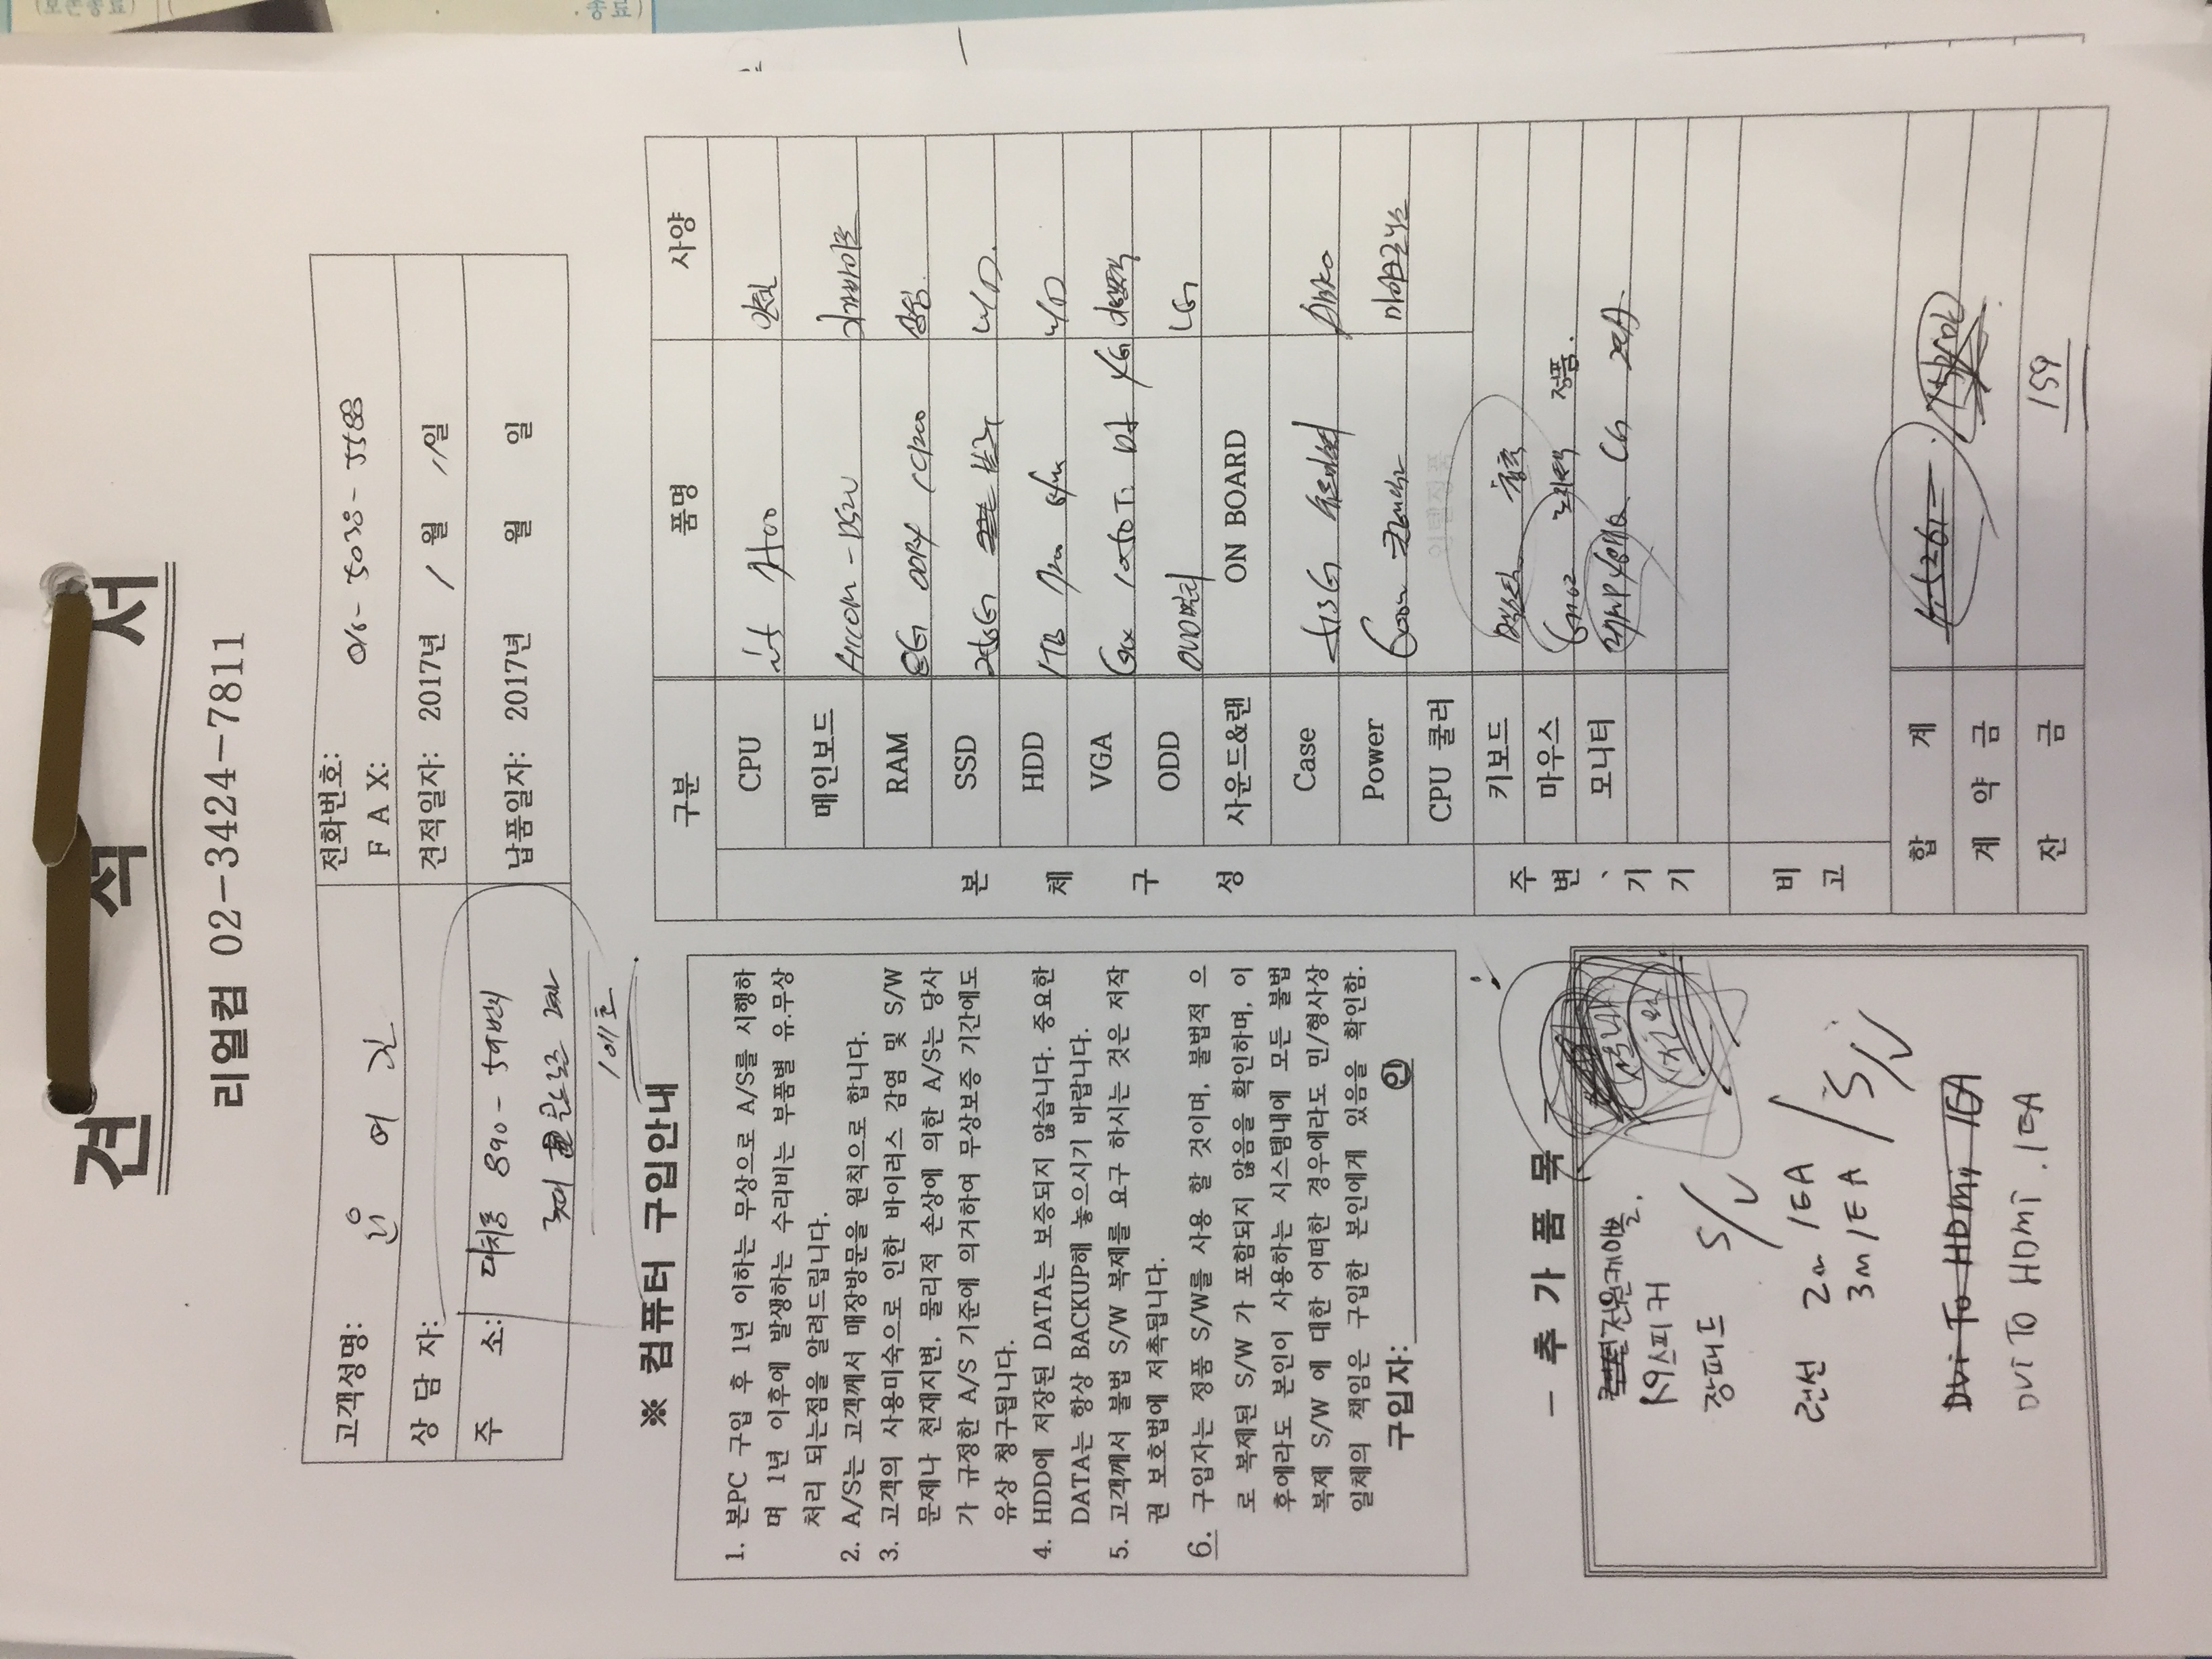 견 적 서
리얼컴 02-3424-7811
고객성명: 원 어 진
전화번호:
FAX:
상 담 자:
견적일자: 2017년 1월 11일
주 소: 대치동 890-59번지
납품일자: 2017년 월 일
1011호
※ 컴퓨터 구입안내
1. 본PC 구입 후 1년 이하는 무상으로 A/S를 시행하
며 1년 이후에 발생하는 수리비는 부품별 유.무상
처리 되는점을 알려드립니다.
2. A/S는 고객께서 매장방문을 원칙으로 합니다.
3. 고객의 사용미숙으로 인한 바이러스 감염 및 S/W
문제나 천재지변, 물리적 손상에 의한 A/S는 당사
가 규정한 A/S 기준에 의거하여 무상보증 기간에도
유상 청구됩니다.
4. HDD에 저장된 DATA는 보증되지 않습니다. 중요한
DATA는 항상 BACKUP해 놓으시기 바랍니다.
5. 고객께서 불법 S/W 복제를 요구 하시는 것은 저작
권 보호법에 저촉됩니다.
6. 구입자는 정품 S/W를 사용 할 것이며, 불법적 으
로 복제된 S/W 가 포함되지 않음을 확인하며, 이
후에라도 본인이 사용하는 시스템내에 모든 불법
복제 S/W 에 대한 어떠한 경우에라도 민/형사상
일체의 책임은 구입한 본인에게 있음을 확인함.
구입자: 인
- 추 가 품 목 -
전원케이블.
스피커
장패드 S/V
랜선 2m 1EA
3m 1EA / S/V
DVI To HDMI 1EA
DVI To HDMI . 1EA
구분 품명 사양
본 체 구 성
CPU i5 7400 인텔
메인보드 기가바이트
RAM 8G DDR4 삼성
SSD 256G WD
HDD 1TB WD
VGA Gtx 1050 Ti D5 4G
ODD DVD멀티 LG
사운드&랜 ON BOARD
Case ABKO
Power 600W 마이크로닉스
CPU 쿨러
주변、기기
키보드
마우스 G402 로지텍 정품.
모니터 LG 2EA
비 고
합 계
계 약 금
잔 금 159